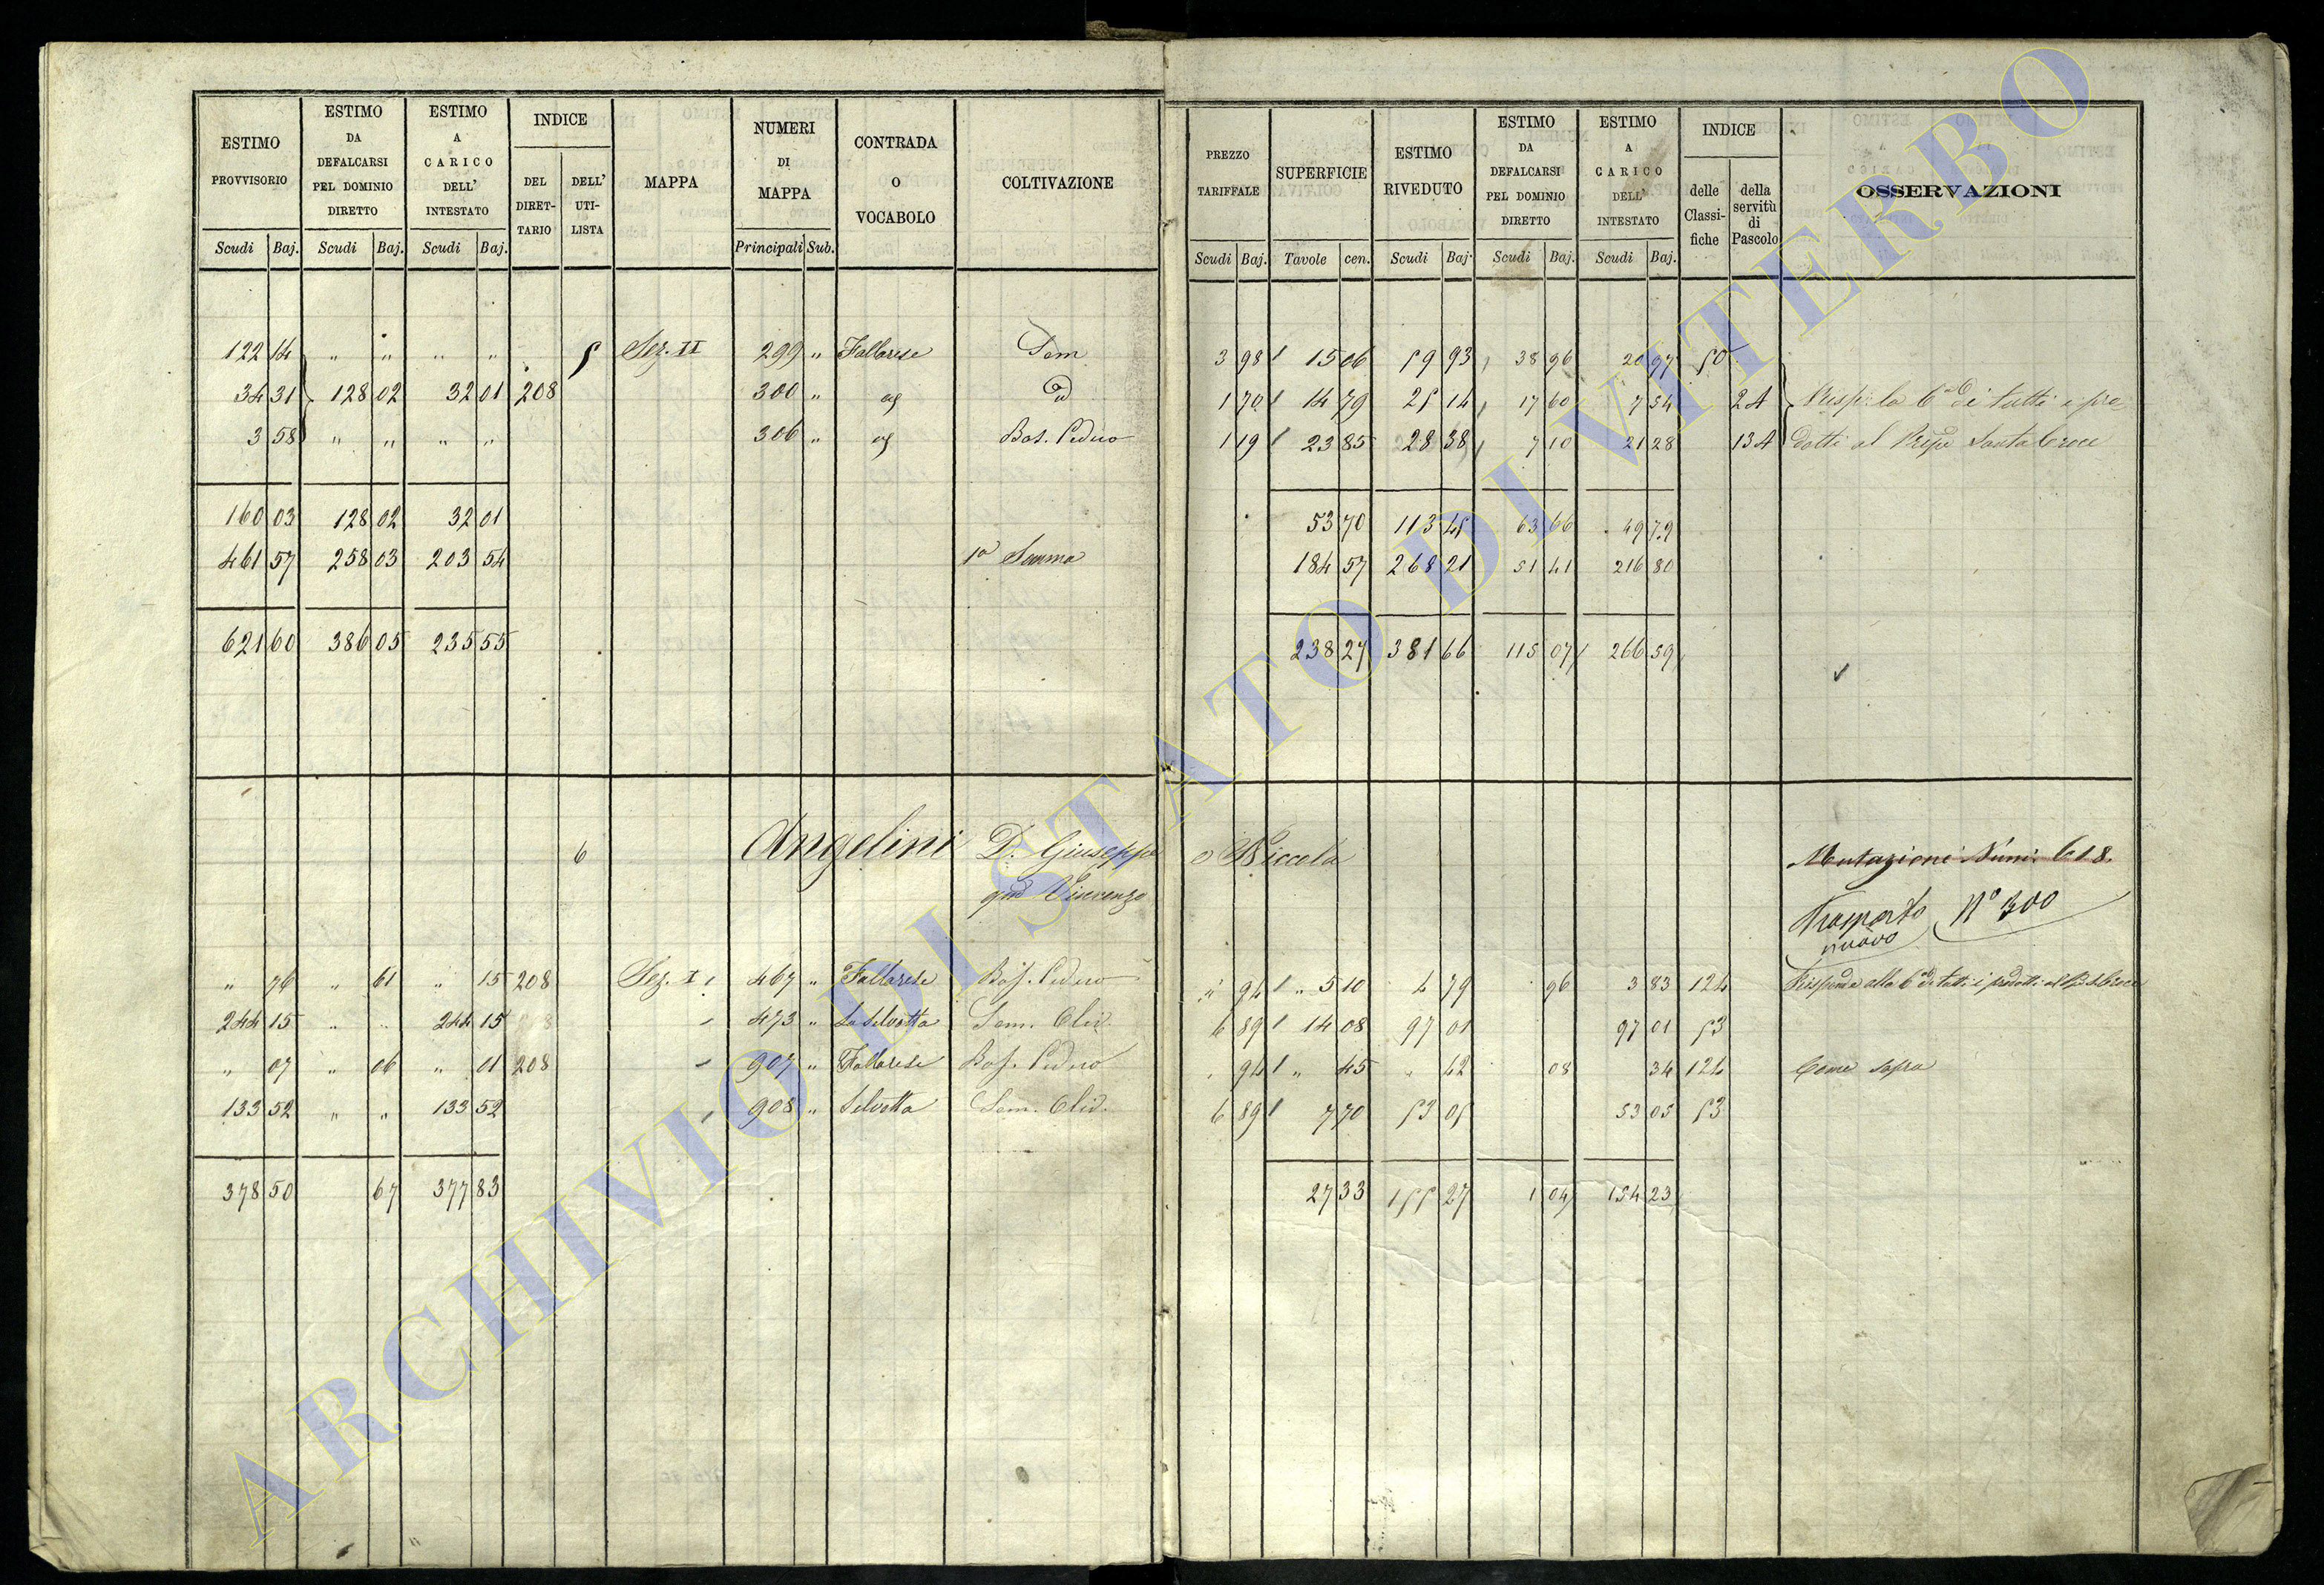 ESTIMO PROVVISORIO | ESTIMO DA DEFALCARSI PEL DOMINIO DIRETTO | ESTIMO A CARICO DELL' INTESTATO | INDICE | MAPPA | NUMERI DI MAPPA | CONTRADA O VOCABOLO | COLTIVAZIONE
DEL DIRET-TARIO | DELL' UTI-LISTA
Scudi | Baj. | Scudi | Baj. | Scudi | Baj. | Principali | Sub.
122 14 " " " " 5 Sez. II 299 " Fallarese Sem
34 31 128 02 32 01 208 300 " " id
3 58 " " " " 306 " " Bos. Ceduo
160 03 128 02 32 01
461 57 258 03 203 54 1a Somma
621 60 386 05 235 55
6 Angelini D. Giuseppe
qm Vincenzo
" 76 " 61 " 15 208 Sez. I 467 " Fallarese Bos. Ceduo
244 15 " " 244 15 473 " La Selvetta Sem. Oliv.
" 07 " 06 " 01 208 907 " Fallarese Bos. Ceduo
133 52 " " 133 52 908 " Selvetta Sem. Oliv.
378 50 67 377 83
PREZZO TARIFFALE | SUPERFICIE | ESTIMO RIVEDUTO | ESTIMO DA DEFALCARSI PEL DOMINIO DIRETTO | ESTIMO A CARICO DELL' INTESTATO | INDICE | OSSERVAZIONI
delle Classi-fiche | della servitù di Pascolo
Scudi | Baj. | Tavole | cen. | Scudi | Baj. | Scudi | Baj. | Scudi | Baj.
3 98 15 06 59 93 38 96 20 97 50
1 70 14 79 25 14 17 60 7 54 2A Risp. la 6a di tutti i pro
1 19 23 85 28 38 7 10 21 28 13A dotti al Santa Croce
53 70 113 45 63 66 49 79
184 57 268 21 51 41 216 80
238 27 381 66 115 07 266 59
o Niccola Mutazioni Num. 618.
Trasporto N° 300
nuovo
" 94 " 5 10 4 79 96 3 83 124 Risponde alla 6a di tutti i prodotti al S. Croce
6 89 14 08 97 01 97 01 53
" 94 " 45 " 42 08 34 124 Come sopra
6 89 7 70 53 05 53 05 53
27 33 155 27 1 04 154 23
ARCHIVIO DI STATO DI VITERBO